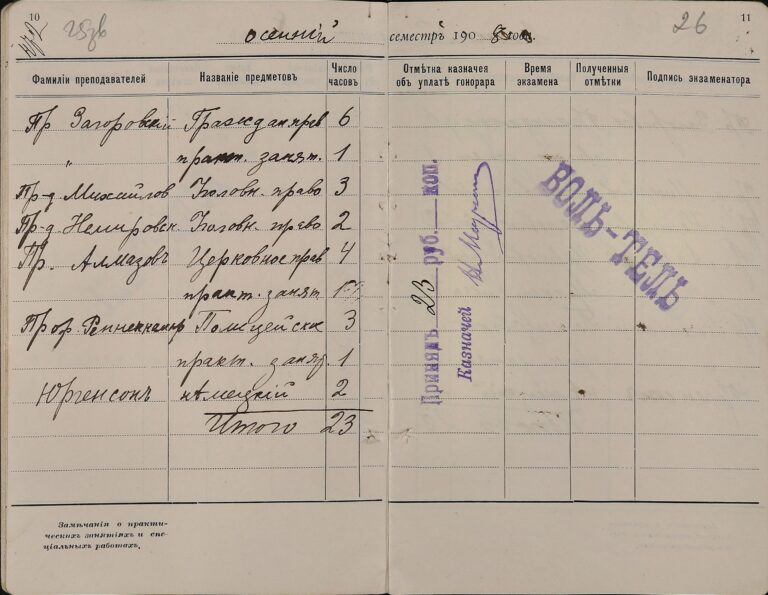 10
осенній
семестръ 190 8 года
26
11
Фамиліи преподавателей
Названіе предметовъ
Число часовъ
Отмѣтка казначея объ уплатѣ гонорара
Время экзамена
Полученныя отмѣтки
Подпись экзаменатора
Пр Загоровскій Гражд 6
" практ. занят. 1
Пр-д Михайлов Уголовн. право 3
Пр-д Немировск. Уголовн. право 2
Пр. Алмазовъ Церковное прав 4
практ. занят 1
Проф Полицейское 3
практ. занят. 1
Юргенсонъ нѣмецкій 2
Итого 23
Принялъ 23 руб. коп.
Казначей
ВОЛЬ-ТЕЛЬ
Замѣчанія о практи-
ческихъ занятіяхъ и спе-
ціальныхъ работахъ.